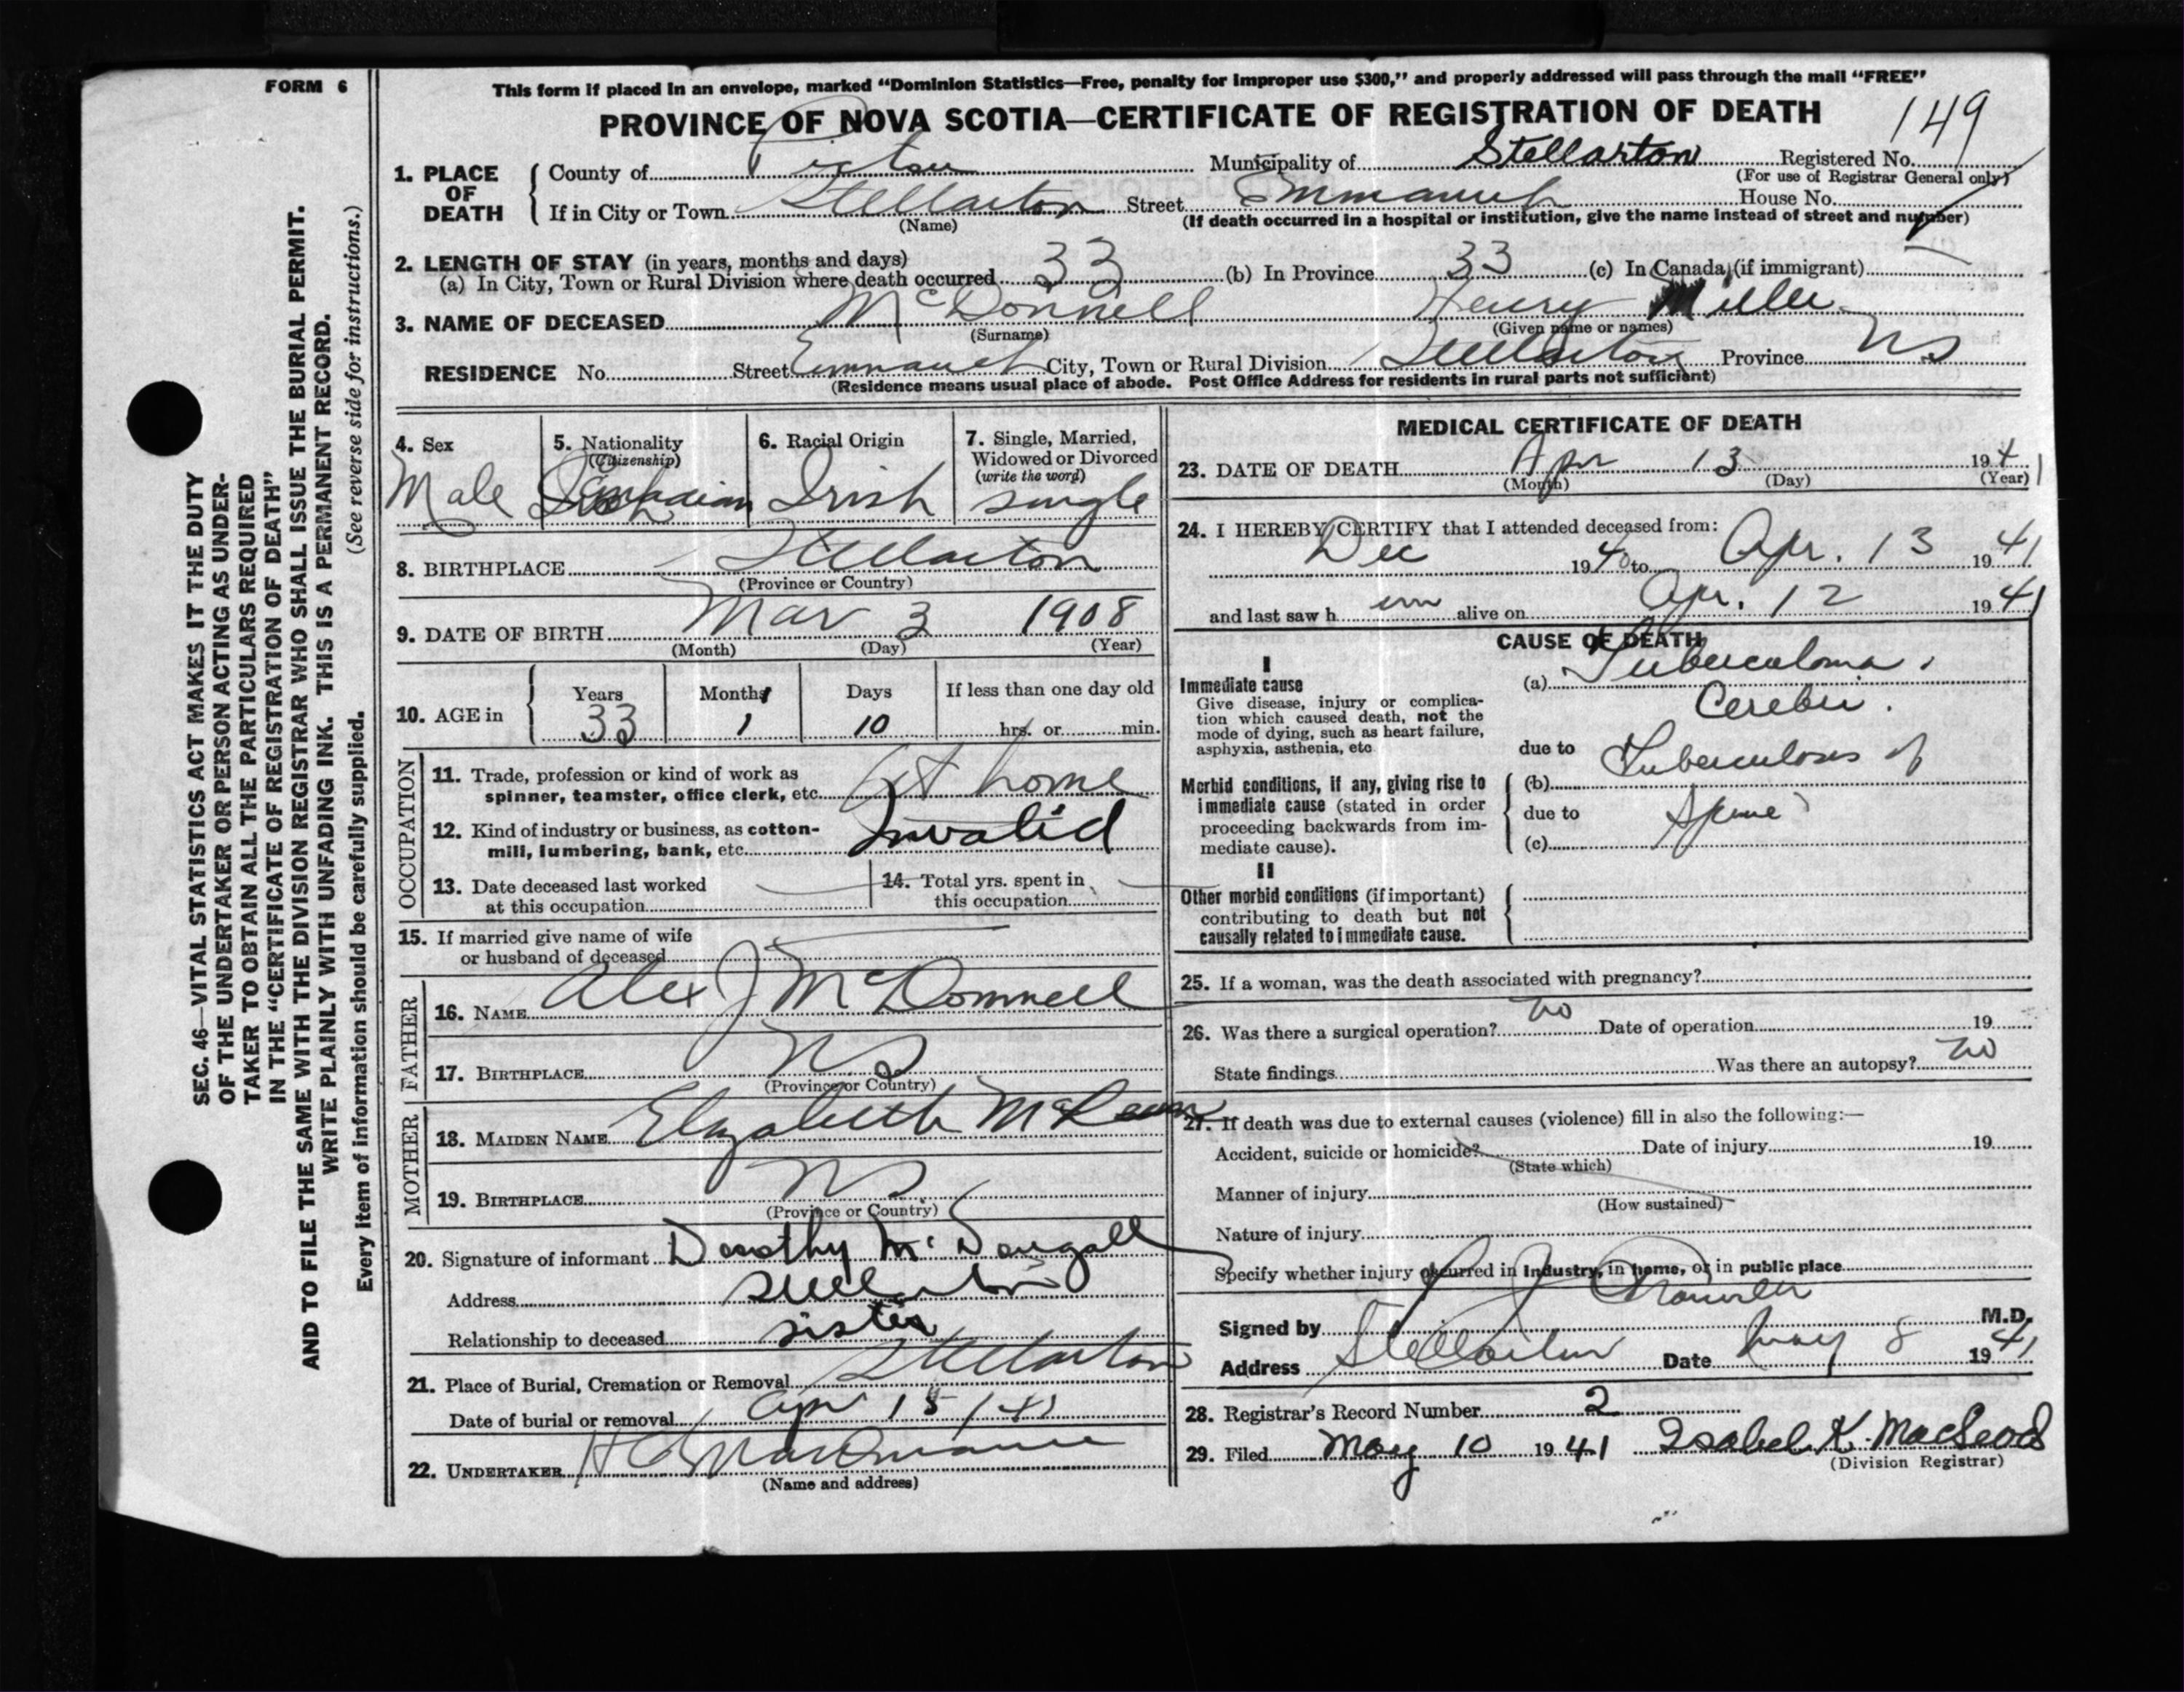 FORM 6
This form if placed in an envelope, marked “Dominion Statistics—Free, penalty for improper use $300,” and properly addressed will pass through the mail “FREE”
PROVINCE OF NOVA SCOTIA—CERTIFICATE OF REGISTRATION OF DEATH
149
1. PLACE OF DEATH
County of Pictou Municipality of Stellarton Registered No.
(For use of Registrar General only)
If in City or Town Stellarton Street House No.
(Name) (If death occurred in a hospital or institution, give the name instead of street and number)
2. LENGTH OF STAY (in years, months and days)
(a) In City, Town or Rural Division where death occurred 33 (b) In Province 33 (c) In Canada (if immigrant)
3. NAME OF DECEASED McDonnell Henry Miller
(Surname) (Given name or names)
RESIDENCE No. Street City, Town or Rural Division Stellarton Province NS
(Residence means usual place of abode. Post Office Address for residents in rural parts not sufficient)
4. Sex
Male
5. Nationality
(Citizenship)
Canadian
6. Racial Origin
Irish
7. Single, Married,
Widowed or Divorced
(write the word)
single
8. BIRTHPLACE Stellarton
(Province or Country)
9. DATE OF BIRTH Mar 3 1908
(Month) (Day) (Year)
10. AGE in
Years Months Days If less than one day old
33 1 10 hrs. or min.
OCCUPATION
11. Trade, profession or kind of work as
spinner, teamster, office clerk, etc. At home
12. Kind of industry or business, as cotton-
mill, lumbering, bank, etc. Invalid
13. Date deceased last worked
at this occupation
14. Total yrs. spent in
this occupation
15. If married give name of wife
or husband of deceased
FATHER
16. NAME Alex J McDonnell
17. BIRTHPLACE NS
(Province or Country)
MOTHER
18. MAIDEN NAME Elizabeth
19. BIRTHPLACE NS
(Province or Country)
20. Signature of informant Dorothy McDougall
Address Stellarton
Relationship to deceased sister
21. Place of Burial, Cremation or Removal Stellarton
Date of burial or removal Apr 15/41
22. UNDERTAKER
(Name and address)
MEDICAL CERTIFICATE OF DEATH
23. DATE OF DEATH Apr 13 1941
(Month) (Day) (Year)
24. I HEREBY CERTIFY that I attended deceased from:
Dec 1940 to Apr. 13 1941
and last saw h im alive on Apr. 12 1941
CAUSE OF DEATH
I
Immediate cause
Give disease, injury or complica-
tion which caused death, not the
mode of dying, such as heart failure,
asphyxia, asthenia, etc
(a) Tuberculoma
Cerebri.
due to
Morbid conditions, if any, giving rise to
immediate cause (stated in order
proceeding backwards from im-
mediate cause).
(b) Tuberculosis of
due to Spine
(c)
II
Other morbid conditions (if important)
contributing to death but not
causally related to immediate cause.
25. If a woman, was the death associated with pregnancy?
26. Was there a surgical operation? no Date of operation 19
State findings Was there an autopsy? no
27. If death was due to external causes (violence) fill in also the following:—
Accident, suicide or homicide? Date of injury 19
(State which)
Manner of injury
(How sustained)
Nature of injury
Specify whether injury occurred in industry, in home, or in public place
Signed by M.D.
Address Stellarton Date May 8 1941
28. Registrar's Record Number 2
29. Filed May 10 1941 Isabel K. MacLeod
(Division Registrar)
SEC. 46—VITAL STATISTICS ACT MAKES IT THE DUTY
OF THE UNDERTAKER OR PERSON ACTING AS UNDER-
TAKER TO OBTAIN ALL THE PARTICULARS REQUIRED
IN THE “CERTIFICATE OF REGISTRATION OF DEATH”
AND TO FILE THE SAME WITH THE DIVISION REGISTRAR WHO SHALL ISSUE THE BURIAL PERMIT.
WRITE PLAINLY WITH UNFADING INK. THIS IS A PERMANENT RECORD.
Every item of information should be carefully supplied. (See reverse side for instructions.)